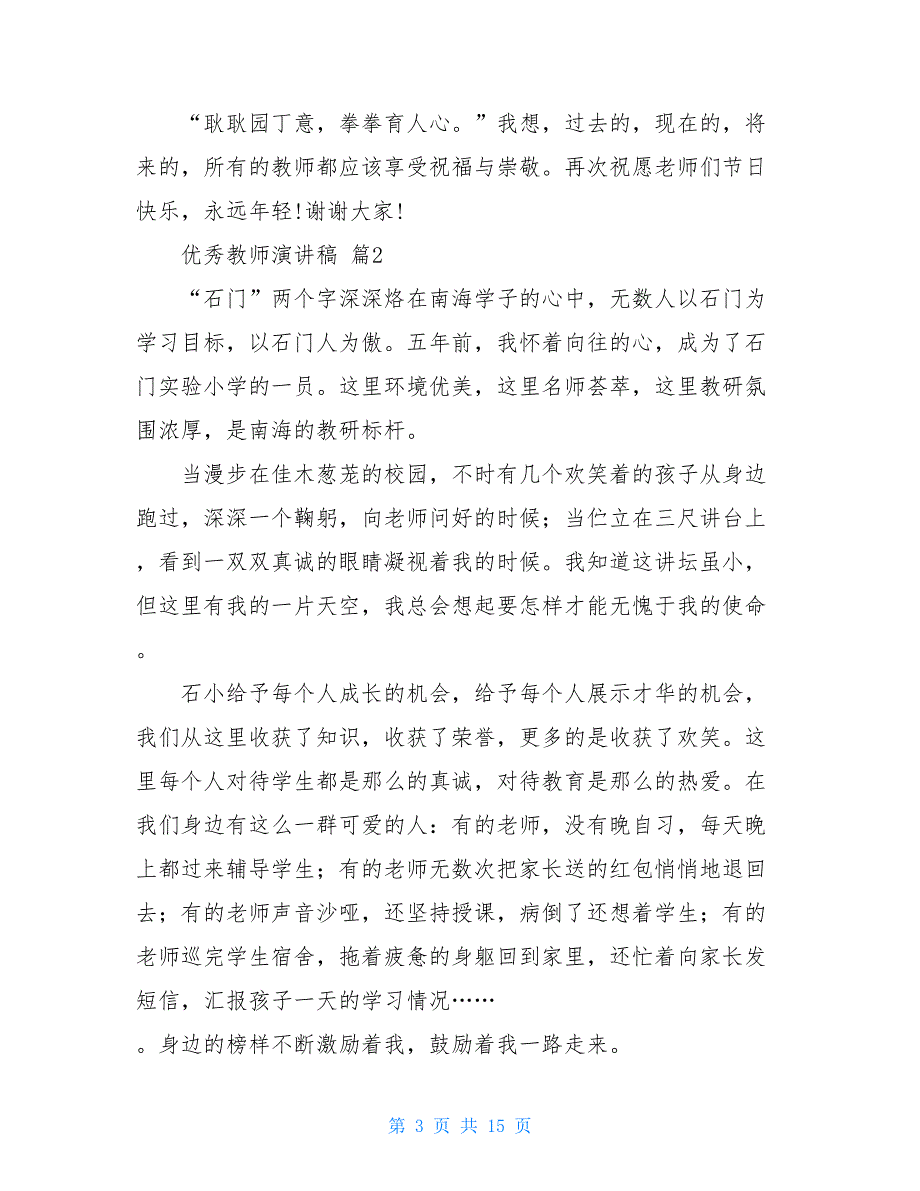 “耿耿园丁意，拳拳育人心。”我想，过去的，现在的，将
来的，所有的教师都应该享受祝福与崇敬。再次祝愿老师们节日
快乐，永远年轻!谢谢大家!
优秀教师演讲稿 篇2
“石门”两个字深深烙在南海学子的心中，无数人以石门为
学习目标，以石门人为傲。五年前，我怀着向往的心，成为了石
门实验小学的一员。这里环境优美，这里名师荟萃，这里教研氛
围浓厚，是南海的教研标杆。
当漫步在佳木葱茏的校园，不时有几个欢笑着的孩子从身边
跑过，深深一个鞠躬，向老师问好的时候；当伫立在三尺讲台上
，看到一双双真诚的眼睛凝视着我的时候。我知道这讲坛虽小，
但这里有我的一片天空，我总会想起要怎样才能无愧于我的使命
。
石小给予每个人成长的机会，给予每个人展示才华的机会，
我们从这里收获了知识，收获了荣誉，更多的是收获了欢笑。这
里每个人对待学生都是那么的真诚，对待教育是那么的热爱。在
我们身边有这么一群可爱的人：有的老师，没有晚自习，每天晚
上都过来辅导学生；有的老师无数次把家长送的红包悄悄地退回
去；有的老师声音沙哑，还坚持授课，病倒了还想着学生；有的
老师巡完学生宿舍，拖着疲惫的身躯回到家里，还忙着向家长发
短信，汇报孩子一天的学习情况……
。身边的榜样不断激励着我，鼓励着我一路走来。
第 3 页 共 15 页